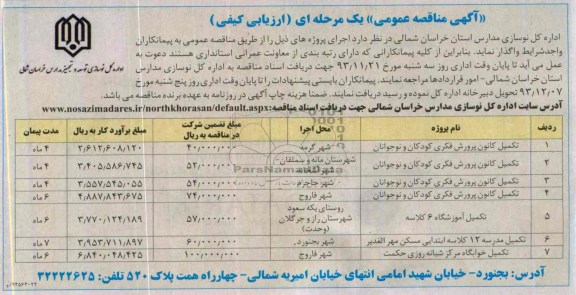 «آگهی مناقصه عمومی» یک مرحله ای (ارزیابی کیفی)
اداره کل نوسازی مدارس استان خراسان شمالی در نظر دارد اجرای پروژه های ذیل را از طریق مناقصه عمومی به پیمانکاران
واجدشرایط واگذار نماید. بنابراین از کلیه پیمانکارانی که دارای رتبه بندی از معاونت عمرانی استانداری هستند دعوت به
عمل می آید تا پایان وقت اداری روز سه شنبه مورخ ۹۳/۱۱/۲۱ جهت دریافت اسناد مناقصه به اداره کل نوسازی مدارس
استان خراسان شمالی-امور قراردادها مراجعه نمایند. پیمانکاران بایستی پیشنهادات را تا پایان وقت اداری روز پنج شنبه مورخ
۹۳/۱۲/۰۷ تحویل دبیرخانه اداره کل نموده و رسید دریافت نمایند. ضمنا هزینه چاپ آگهی در روزنامه به عهده برنده مناقصه می باشد.
اداره کل نوسازی، توسعه و تجهیز مدارس خراسان شمالی
آدرس سایت اداره کل نوسازی مدارس خراسان شمالی جهت دریافت اسناد مناقصه: www.nosazimadares.ir/northkhorasan/default.aspx
ردیف نام پروژه محل اجرا مبلغ تضمین شرکت در مناقصه به ریال مبلغ برآورد کار به ریال مدت پیمان
۱ تکمیل کانون پرورش فکری کودکان و نوجوانان شهر گرمه ۴۰/۰۰۰/۰۰۰ ۲/۶۱۲/۶۰۸/۱۲۰ ۴ ماه
۲ تکمیل کانون پرورش فکری کودکان و نوجوانان شهرستان مانه و سملقان- ۵۲/۰۰۰/۰۰۰ ۳/۴۰۵/۵۸۶/۷۴۵ ۴ ماه
۳ تکمیل کانون پرورش فکری کودکان و نوجوانان شهر جاجرم ۵۴/۰۰۰/۰۰۰ ۳/۵۵۷/۵۴۵/۰۵۵ ۴ ماه
۴ تکمیل کانون پرورش فکری کودکان و نوجوانان شهر فاروج ۷۴/۰۰۰/۰۰۰ ۴/۸۸۷/۸۴۳/۶۷۵ ۶ ماه
۵ تکمیل آموزشگاه ۶ کلاسه روستای یکه سعود شهرستان راز و جرگلان (وحدت) ۵۷/۰۰۰/۰۰۰ ۳/۷۷۰/۱۲۴/۱۸۹ ۶ ماه
۶ تکمیل مدرسه ۱۲ کلاسه ابتدایی مسکن مهر الغدیر شهر بجنورد. ۶۰/۰۰۰/۰۰۰ ۳/۹۵۳/۷۱۱/۸۹۷ ۷ ماه
۷ تکمیل خوابگاه مرکز شبانه روزی حکمت شهر فاروج ۱۰۰/۰۰۰/۰۰۰ ۶/۸۴۰/۰۴۸/۴۲۵ ۶ ماه
آدرس: بجنورد- خیابان شهید امامی انتهای خیابان امیریه شمالی- چهارراه همت پلاک ۵۲۰ تلفن: ۳۲۲۲۲۶۲۵